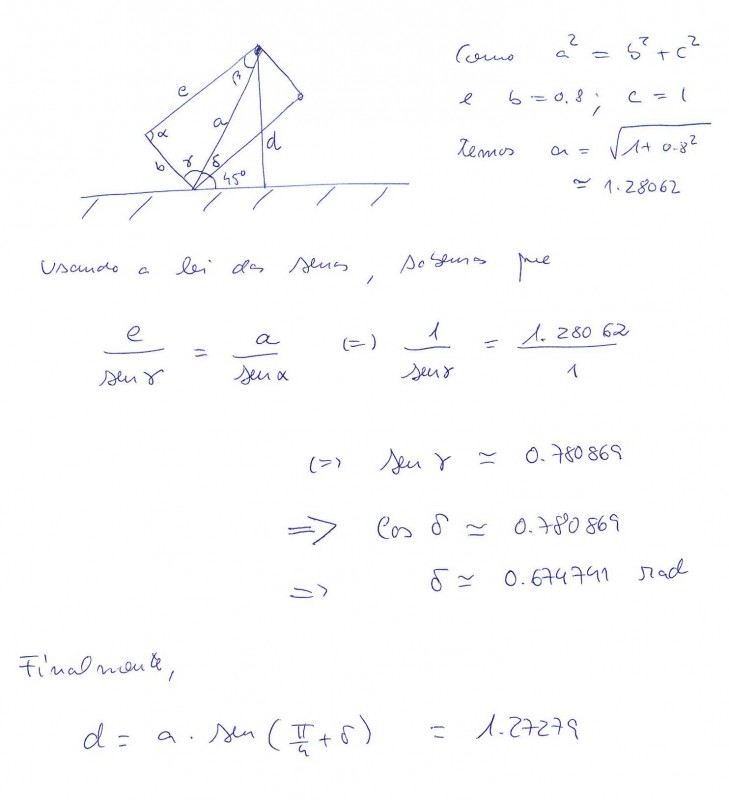 Como a² = b² + c²
e b = 0.8; c = 1
temos a = √(1 + 0.8²)
≃ 1.28062
β
c
α
a
d
b
γ
δ
45º
Usando a lei dos senos, sabemos que
c / sen γ = a / sen α (=) 1 / sen γ = 1.28062 / 1
(=) sen γ ≃ 0.780869
=> Cos δ ≃ 0.780869
=> δ ≃ 0.674741 rad
Finalmente,
d = a . sen (π/4 + δ) = 1.27279